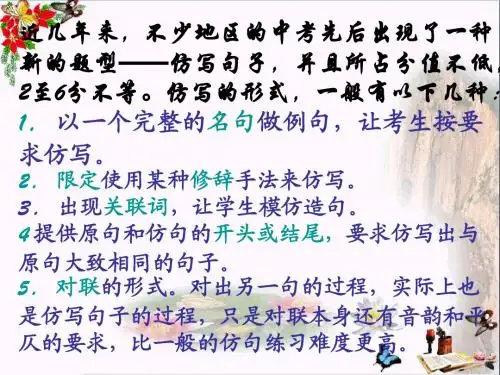 近几年来，不少地区的中考先后出现了一种
新的题型——仿写句子，并且所占分值不低，
2至6分不等。仿写的形式，一般有以下几种：
1. 以一个完整的名句做例句，让考生按要
求仿写。
2. 限定使用某种修辞手法来仿写。
3. 出现关联词，让学生模仿造句。
4提供原句和仿句的开头或结尾，要求仿写出与
原句大致相同的句子。
5. 对联的形式。对出另一句的过程，实际上也
是仿写句子的过程，只是对联本身还有音韵和平
仄的要求，比一般的仿句练习难度更高。